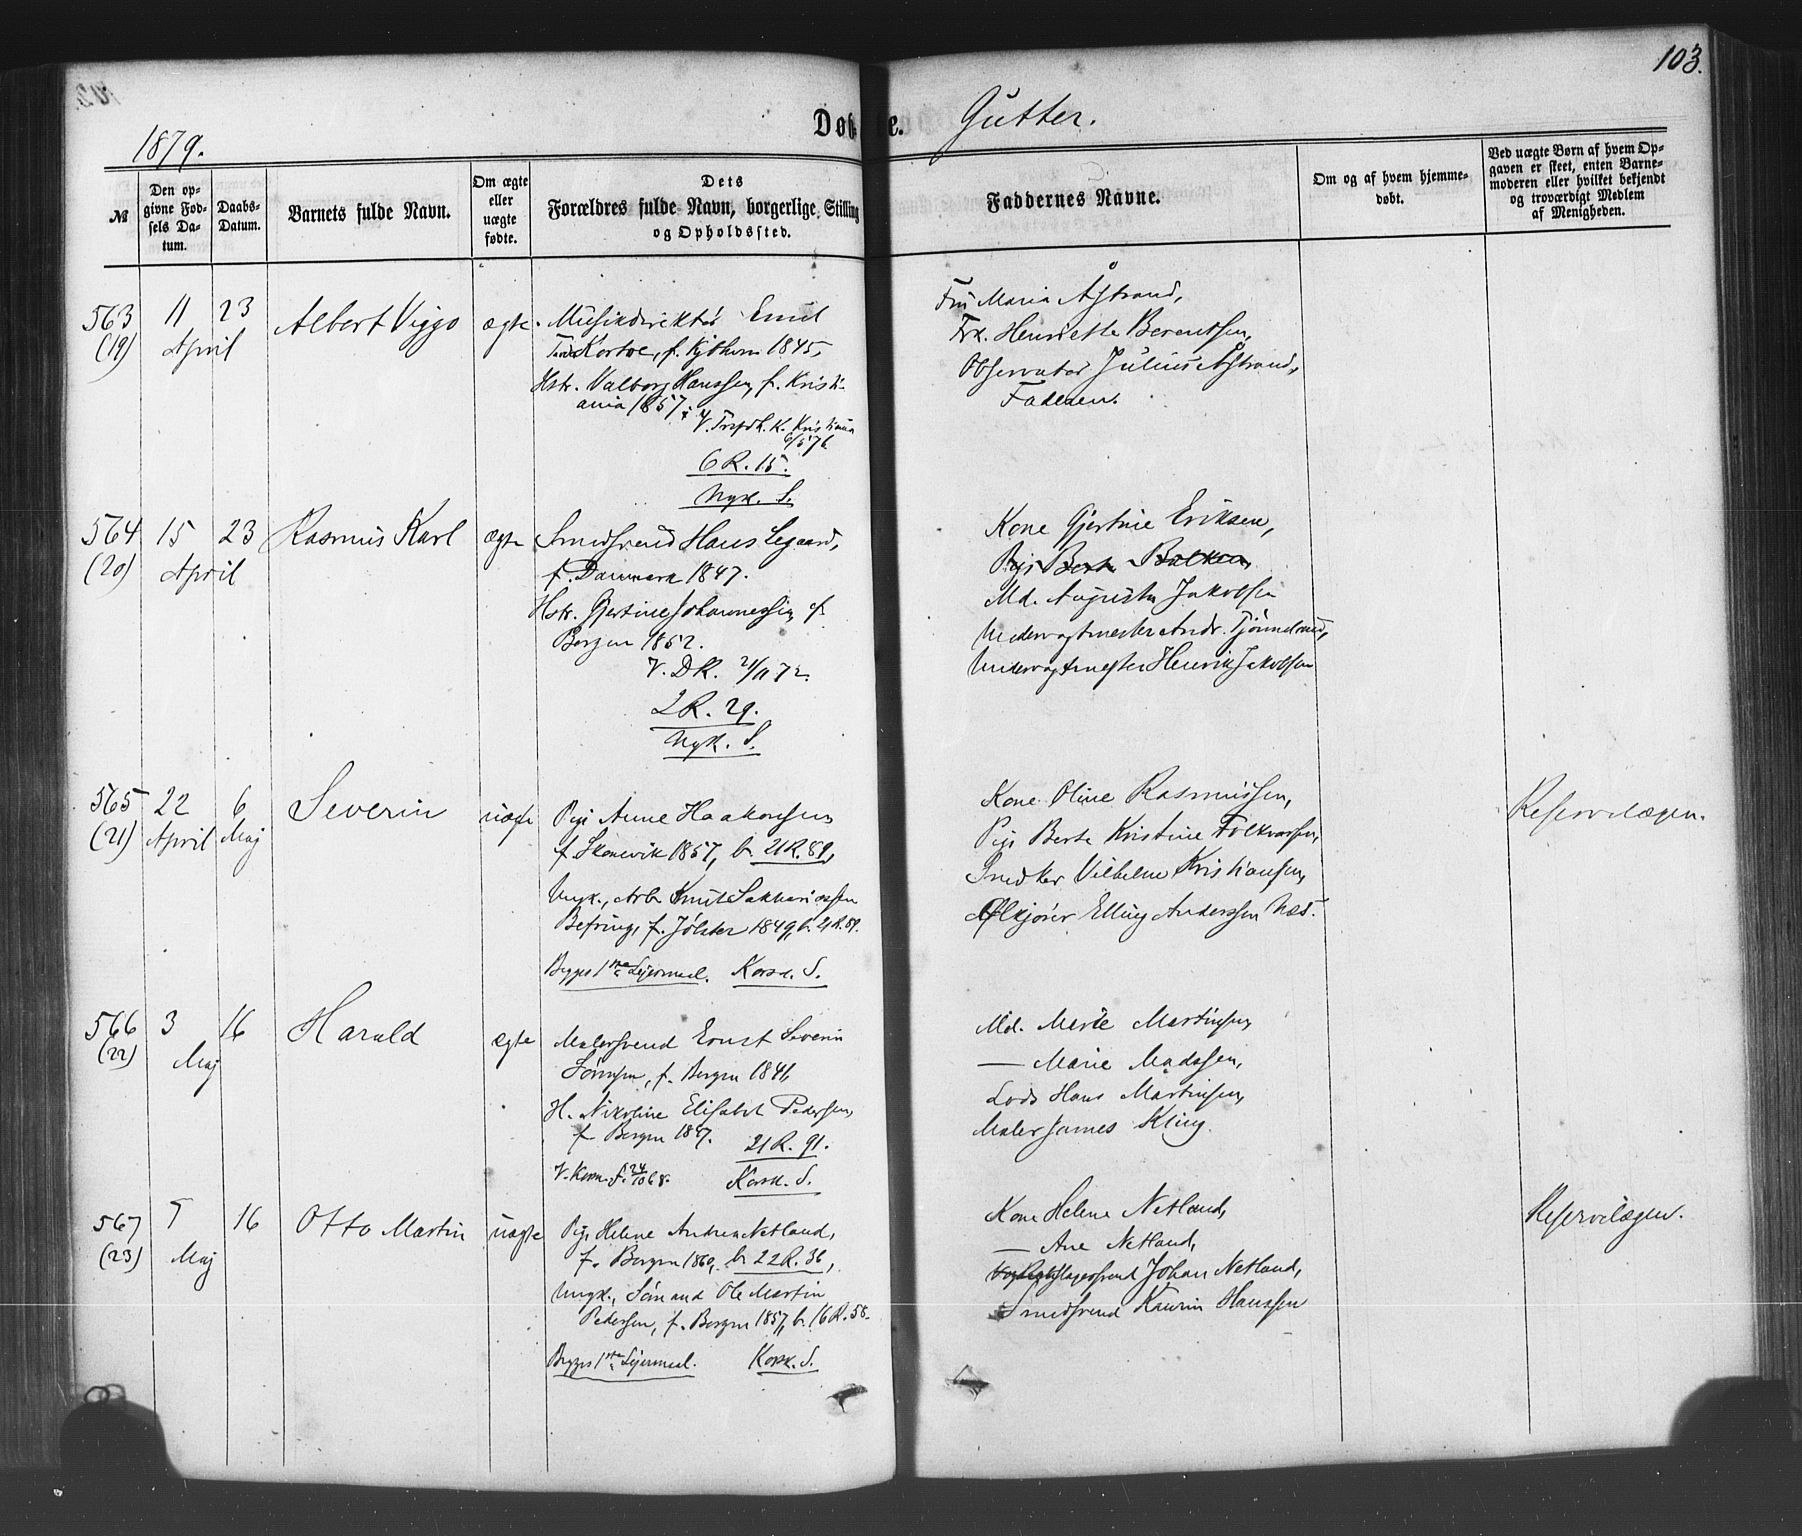 103.
1879.
Døbte. Gutter.
№
Den opgivne Fødsels Datum.
Daabs-Datum.
Barnets fulde Navn.
Om ægte eller uægte fødte.
Dets Forældres fulde Navn, borgerlige Stilling og Opholdssted.
Faddernes Navne.
Om og af hvem hjemmedøbt.
Ved uægte Børn af hvem Opgaven er skeet, enten Barnemoderen eller hvilket bekjendt og troværdigt Medlem af Menigheden.
563
(19)
11 April
23
Albert Viggo
ægte
Musikdirektør Emil
Korboe, f. Kjøbhvn 1845,
Hstr. Valborg Hanssen, f. Kristi-
ania 1857.
V. Trefdh. K. Kristiania
6/5 76
6 R. 15.
Nyk. S.
Fru Maria Åstrand,
Frk. Henriette Berentsen,
Observator Julius Åstrand,
Faderen.
564
(20)
15 April
23
Rasmus Karl
ægte
Smedsvend Hans Legaard,
f. Danmark 1847.
Hstr. Gjertine Johannessen, f.
Bergen 1852.
V. DK. 21/11 72.
2 R. 29.
Nyk. S.
Kone Gjertine Eriksen,
Pige Berta Balken,
Md. Augusta Jakobsen
Undervagtmester Andr.
Undervagtmester Henrik Jakobsen
565
(21)
22 April
6 Maj
Severin
uægte
Pige Anne Haakonsen,
f. Skonevik 1857, b. 21 R. 89,
Ungk., Arb. Knut Sakkariassen
Befring, f. Jølster 1849, b. 21 R. 89.
Begges 1ste Leiermaal. Korsk. S.
Kone Oline Rasmussen,
Pige Berta Kristine Folkvorssen,
Snedker Vilhelm Kristiansen,
Ølkjører Elling Anderssen Næs.
Reservelægen.
566
(22)
3 Maj
16
Harald
ægte
Malersvend Ernst Severin
Sørensen, f. Bergen 1841,
H. Nikoline Elisabet Pedersen,
f. Bergen 1847.
21 R. 91.
V. Korsk. S. 24/10 68.
Korsk. S.
Md. Marie Martinsen,
— Marie Madssen,
Lods Hans Martinsen,
Maler James Kling.
567
(23)
5 Maj
16
Otto Martin
uægte
Pige Helene Andrea Netland,
f. Bergen 1860, b. 22 R. 36,
Ungk., Sømand Ole Martin
Pedersen, f. Bergen 1857, b. 16 R. 58.
Begges 1ste Leiermaal. Korsk. S.
Kone Helene Netland,
— Ane Netland,
Johan Netland,
Smedsvend Kaurin Hanssen
Reservelægen.